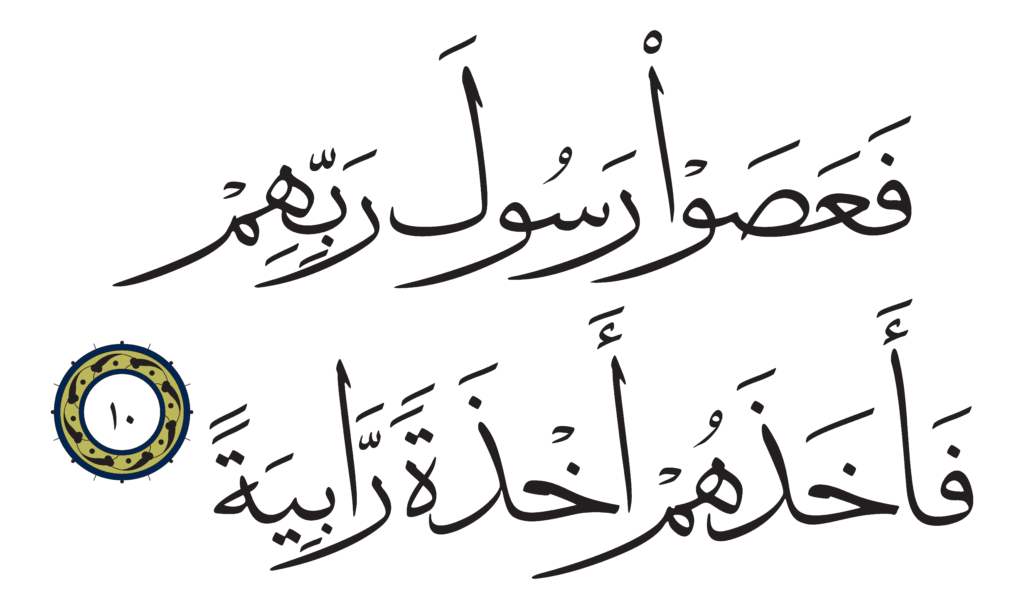 فَعَصَوْا۟ رَسُولَ رَبِّهِمْ
فَأَخَذَهُمْ أَخْذَةً رَّابِيَةً ١٠